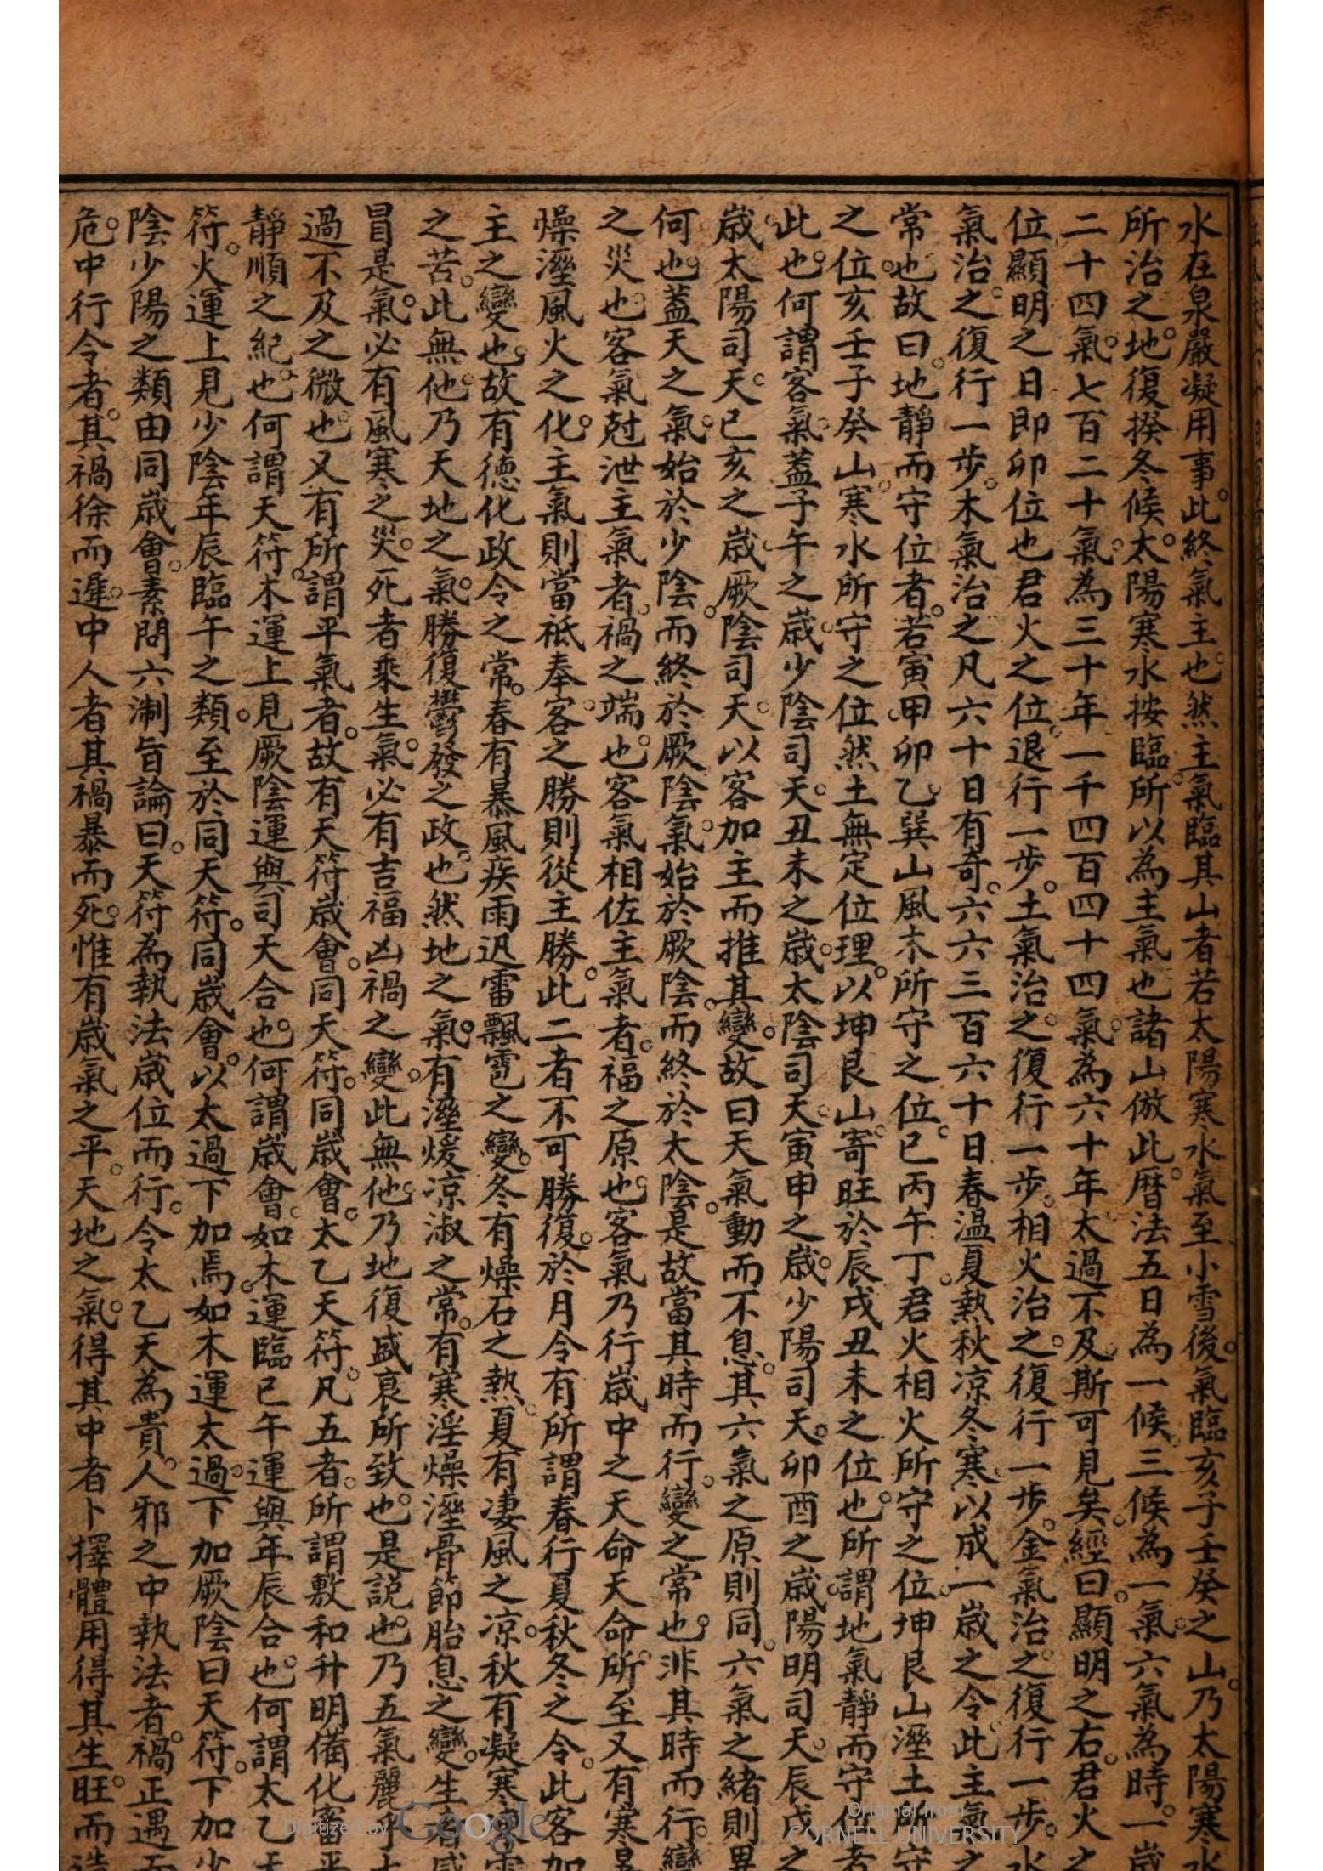 水在泉嚴凝用事。此終氣主也。然主氣臨其山者若太陽寒水氣至小雪後。氣臨亥子壬癸之山。乃太陽寒水
所治之地。復揆冬候。太陽寒水按臨。所以為主氣也諸山倣此。曆法五日為一候。三候為一氣。六氣為時。一歲
二十四氣。七百二十氣。為三十年一千四百四十四氣。為六十年太過不及斯可見矣。經曰。顯明之右。君火之
位顯明之日即卯位也君火之位退行一步。土氣治之。復行一步。相火治之。復行一步。金氣治之。復行一步。水
氣治之。復行一步。木氣治之凡六十日有奇。六六三百六十日春温夏熱秋凉冬寒。以成一歲之令此主氣之
常也故曰。地靜而守位者。若寅甲卯乙巽山風木所守之位。巳丙午丁。君火相火所守之位坤艮山溼土所守
之位。亥壬子癸山。寒水所守之位然土無定位理。以坤艮山。寄旺於辰戌丑未之位也。所謂地氣靜而守位者
此也。何謂客氣。蓋子午之歲。少陰司天。丑未之歲。太陰司天。寅申之歲。少陽司天。卯酉之歲。陽明司天。辰戌之
歲。太陽司天。已亥之歲。厥陰司天。以客加主而推其變。故曰天氣動而不息。其六氣之原則同。六氣之緒則異
何也。蓋天之氣。始於少陰。而終於厥陰。氣始於厥陰。而終於太陰。是故當其時而行。變之常也。非其時而行。變
之災也。客氣尅泄主氣者。禍之端也。客氣相佐主氣者。福之原也。客氣乃行歲中之天命天命所至又有寒暑
燥溼風火之化。主氣則當祗奉客。之勝則從主勝。此二者不可勝復。於月令有所謂春行夏秋冬之令。此客加
主之變也。故有德化政令之常。春有暴風疾雨迅雷飄雹之變。冬有燥石之熱。夏有凄風之凉。秋有凝寒
之苦。此無他。乃天地之氣。勝復鬱發之政。也然地之氣。有溼煖凉淑之常。有寒淫燥溼骨節胎息之變。生者感
冒是氣。必有風寒之災。死者乘生氣。必有吉福凶禍之變。此無他。乃地復盛衰所致也。是說也。乃五氣麗乎
過不及之微也。又有所謂平氣者。故有天符歲會。同天符。同歲會。太乙天符。凡五者。所謂敷和升明備化審平
靜順之紀。也何謂天符。木運上見厥陰運與司天合也。何謂歲會。如木運臨已午運與年辰合也。何謂太乙天
符。火運上見少陰年辰臨午之類。至於同天符。同歲會。以太過下加焉如木運太過。下加厥陰曰天符。下加少
陰少陽之類由同歲會。素問六㣲旨論曰。天符為執法歲位而行。令太乙天為貴。人邪之中執法者。禍正遇而
危。中行令者。其禍徐而遲。中人者其禍暴而死。惟有歲氣之平。天地之氣。得其中者卜擇體用得其生旺。而造
Digitized by Google
Original from
CORNELL UNIVERSITY